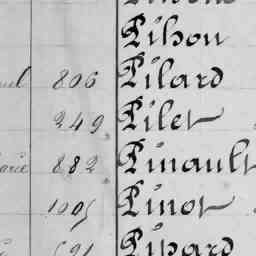 Pihou
806 Pilard
249 Pilet
882 Pinault
1005 Pinot
Pipard